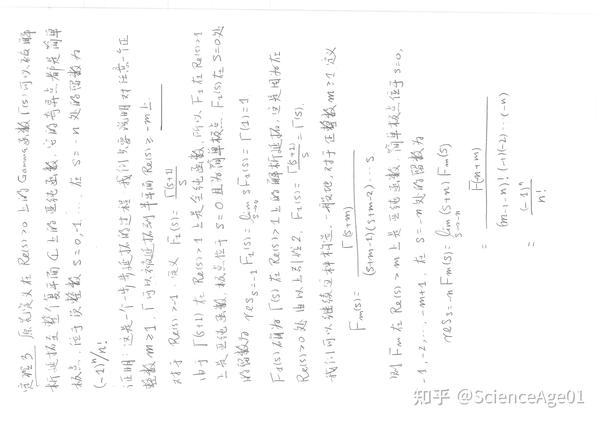 定理3 原先定义在 Re(s)>0 上的 Gamma函数 Γ(s) 可以被解
析延拓至整个复平面 ℂ 上的亚纯函数, 它的奇异点都是简单
极点, 位于负整数 s=0,-1,…. 在 s=-n 处的留数为
(-1)ⁿ/n!
证明: 这是一个一步步延拓的过程. 我们只要说明对任意一个正
整数 m≥1, Γ可以被延拓到半平面 Re(s)>-m 上.
对于 Re(s)>-1, 定义 F₁(s)= Γ(s+1)/s
由于 Γ(s+1) 在 Re(s)>-1 上是全纯函数, 所以 F₁ 在 Re(s)>-1
上是亚纯函数, 极点位于 s=0 且为简单极点. F₁(s) 在 s=0 处
的留数为 res_{s=-1} F₁(s)= lim_{s→0} sF₁(s)=Γ(1)=1
F₁(s) 确为 Γ(s) 在 Re(s)>-1 上的解析延拓, 这是因为在
Re(s)>0 处由以上引理2, F₁(s)= Γ(s+1)/s =Γ(s).
我们可以继续这种构造. 一般地, 对于正整数 m≥1 定义
F_m(s)= Γ(s+m)/(s+m-1)(s+m-2)⋯s
则 F_m 在 Re(s)>m 上是亚纯函数, 简单极点位于 s=0,
-1,-2,…,-m+1, 在 s=-n 处的留数为
res_{s=-n} F_m(s)= lim_{s→-n} (s+n)F_m(s)
= Γ(n+m)/(m-1-n)!(-1)(-2)⋯(-n)
= (-1)ⁿ/n!
知乎 @ScienceAge01